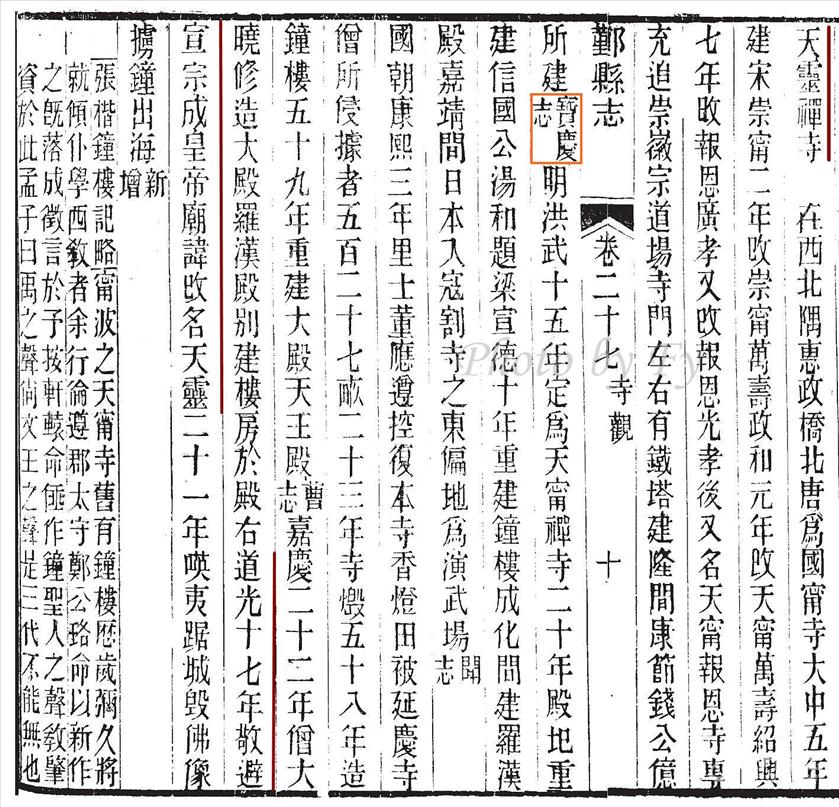 天靈禪寺 在西北隅惠政橋北唐爲國甯寺大中五年
建宋崇甯二年改崇甯萬壽政和元年改天甯萬壽紹興
七年改報恩廣孝又改報恩光孝後又名天甯報恩寺專
充追崇徽宗道場寺門左右有鐵塔建隆間康節錢公億
鄞縣志 卷二十七 寺觀 十
所建寶慶志明洪武十五年定爲天甯禪寺二十年殿圯重
建信國公湯和題梁宣德十年重建鐘樓成化間建羅漢
殿嘉靖間日本入寇割寺之東偏地爲演武場聞志
國朝康熙三年里士董應遵控復本寺香燈田被延慶寺
僧所侵據者五百二十七畝二十三年寺燬五十八年造
鐘樓五十九年重建大殿天王殿曹志嘉慶二十二年僧大
曉修造大殿羅漢殿別建樓房於殿右道光十七年敬避
宣宗成皇帝廟諱改名天靈二十一年暎夷踞城毀佛像
擄鐘出海新增
張楷鐘樓記略甯波之天甯寺舊有鐘樓歷歲彌久將
就傾仆學西敎者余行倫遵郡太守鄭公珞命以新作
之旣落成徵言於予按軒轅命倕作鐘聖人之聲敎肇
資於此孟子曰禹之聲尙文王之聲是三代不能無也
Photo by Fy